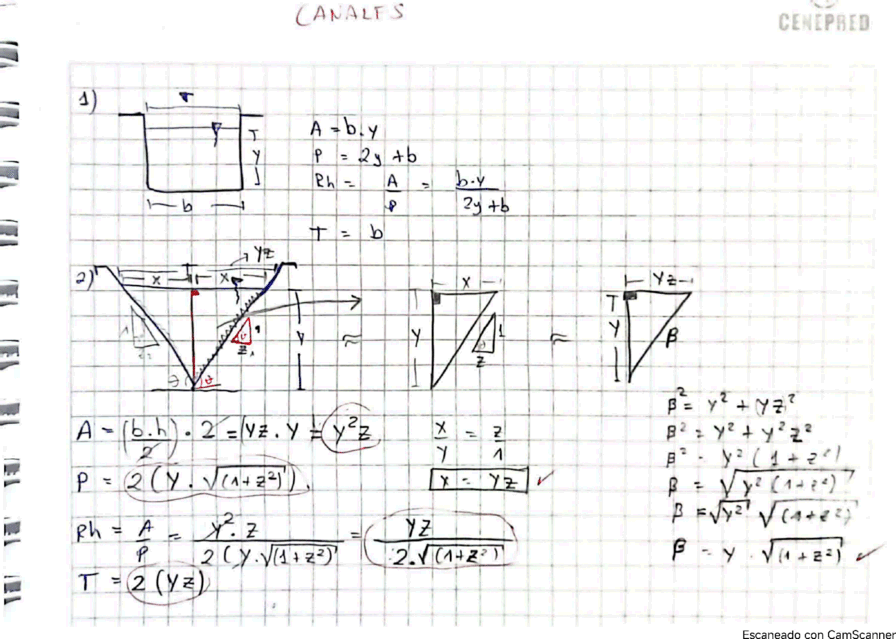 CANALES
CENEPRED
1)
T
Y
b
A = b.y
P = 2y + b
Rh = A/P = b.y/2y+b
T = b
2)
T
YZ
x x
1
Z
Y
θ θ
x
Y
1
Z
≈
≈
YZ
Y
β
A = (b.h/2) · 2 = (YZ · Y) = Y²Z
P = 2(Y · √(1+Z²))
Rh = A/P = Y² · Z/2(Y·√(1+Z²)) = YZ/2·√(1+Z²)
T = 2(YZ)
x/Y = Z/1
x = YZ ✓
β² = Y² + YZ²
β² = Y² + Y²Z²
β² = Y²(1+Z²)
β = √Y²(1+Z²)
β = √Y² √(1+Z²)
β = Y · √(1+Z²) ✓
Escaneado con CamScanner